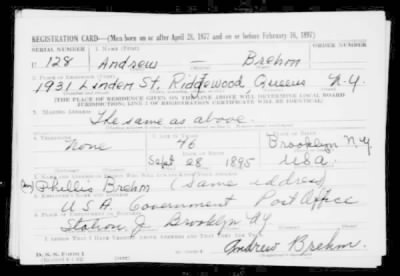 REGISTRATION CARD—(Men born on or after April 28, 1877 and on or before February 16, 1897)
SERIAL NUMBER 1. NAME (Print) ORDER NUMBER
U 128 Andrew — Brehm
2. PLACE OF RESIDENCE (Print)
1931 Linden St, Ridgewood, Queens N-Y.
[THE PLACE OF RESIDENCE GIVEN ON THE LINE ABOVE WILL DETERMINE LOCAL BOARD
JURISDICTION; LINE 2 OF REGISTRATION CERTIFICATE WILL BE IDENTICAL]
3. MAILING ADDRESS
The same as above.
4. TELEPHONE
None 46 Brooklyn N-Y
Sept 28, 1895 USA.
Phillis Brehm (Same address)
U.S.A. Government Post Office
Station J Brooklyn NY
I AFFIRM THAT I HAVE VERIFIED ABOVE ANSWERS AND THAT THEY ARE TRUE.
Andrew Brehm.
D. S. S. Form 1